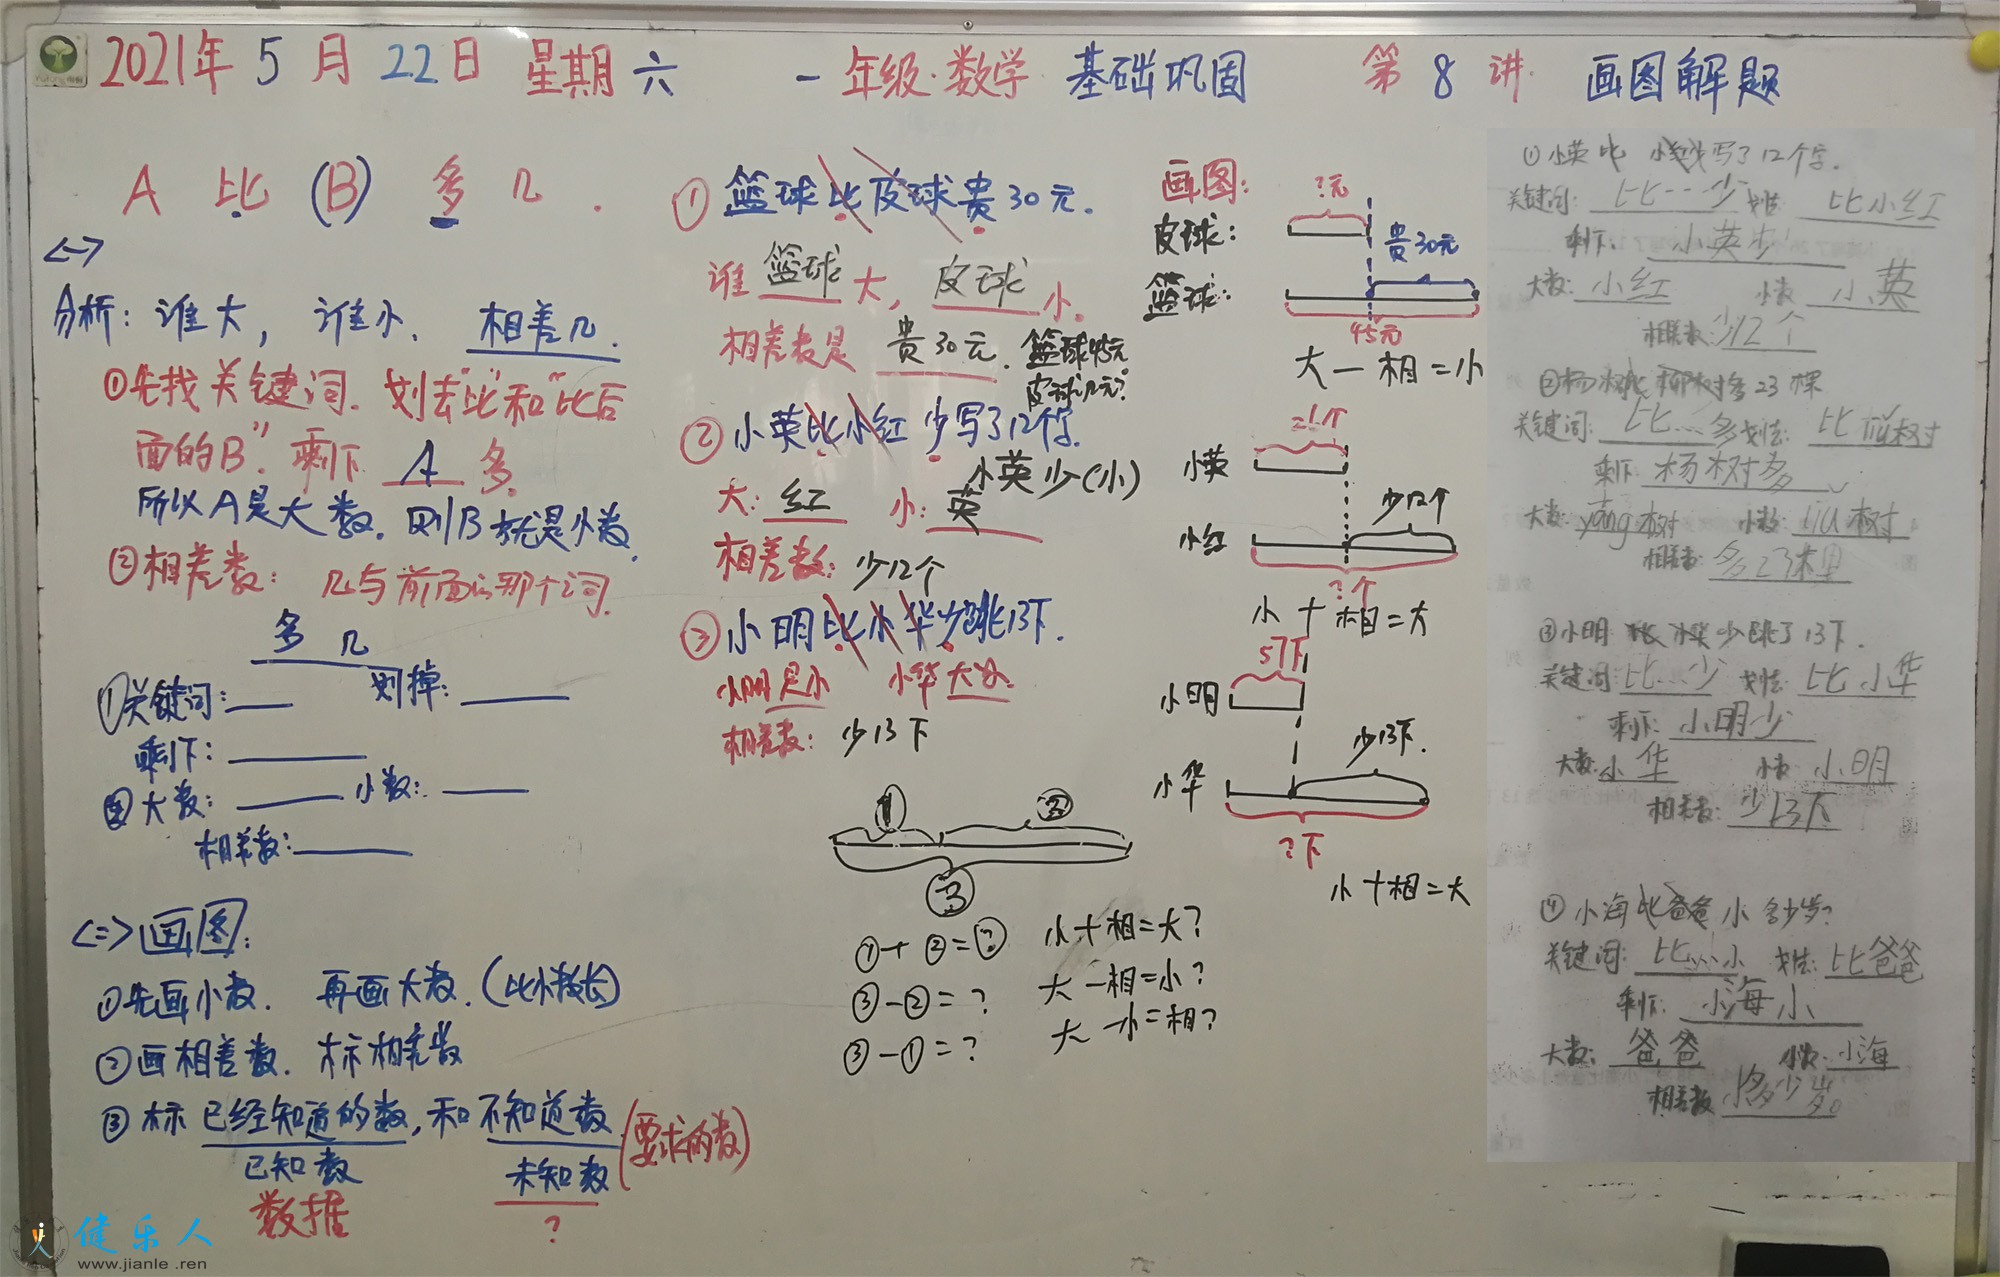 2021年5月22日 星期六 一年级·数学 基础巩固 第8讲 画图解题
A 比 (B) 多 几.
<一>
分析: 谁大, 谁小. 相差几.
①先找关键词. 划去"比"和"比后
面的B". 剩下 A 多.
所以A是大数. 则B就是小数.
②相差数: 几与前面的那个词.
多 几
①关键词: 划掉:
剩下:
②大数: 小数:
相差数:
<二>画图:
①先画小数. 再画大数.(比小数长)
②画相差数. 标相差数
③标 已经知道的数, 和 不知道数 (要求的数)
已知数 未知数
数据 ?
①篮球比皮球贵30元.
谁 篮球 大, 皮球 小.
相差数是 贵30元. 篮球45元
皮球几元?
②小英比小红 少写了12个字.
小英少(小)
大: 红 小: 英
相差数: 少12个
③小明比小华少跳13下.
小明是小 小华大数.
相差数: 少13下
① ②
③
①+②=?
③-②=?
③-①=?
小+相=大?
大-相=小?
大-小=相?
画图:
?元
皮球:
贵30元
篮球:
45元
大-相=小
小英
少12个
小红
?个
小+相=大
57下
小明
少13下.
小华
?下
小+相=大
①小英比 写了12个字.
关键词: 比…少 划去: 比小红
剩下: 小英少
大数: 小红 小数: 小英
相差数: 少12个
②杨树比柳树多23棵
关键词: 比…多 划去: 比柳树
剩下: 杨树多
大数: yáng树 小数: liǔ树
相差数: 多23棵
③小明比小华少跳了13下.
关键词: 比…少 划去: 比小华
剩下: 小明少
大数: 小华 小数: 小明
相差数: 少13下
④小海比爸爸小多少岁?
关键词: 比…小 划去: 比爸爸
剩下: 小海小
大数: 爸爸 小数: 小海
相差数: 小多少岁。
健乐人
www.jianle.ren